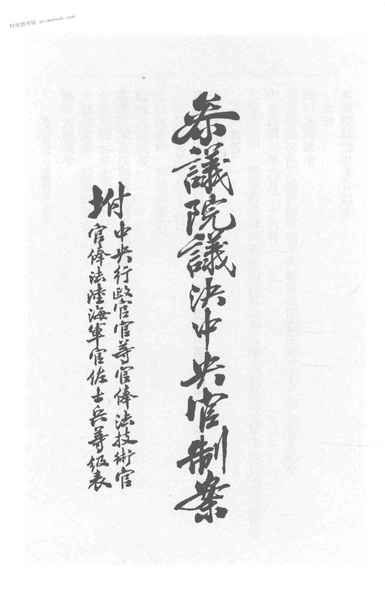 參議院議決中央官制案
附
中央行政官官等官俸法技術官
官俸法陸海軍官佐士兵等級表